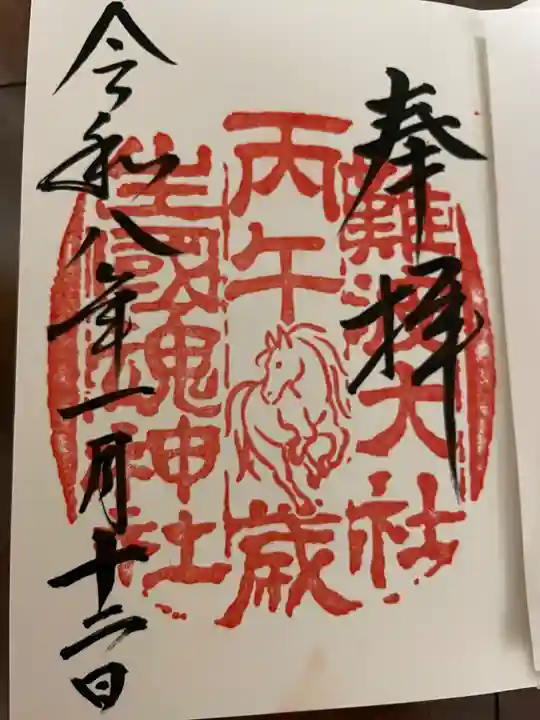 奉拝
難波大社
丙午歳
生國魂神社
令和八年一月十二日